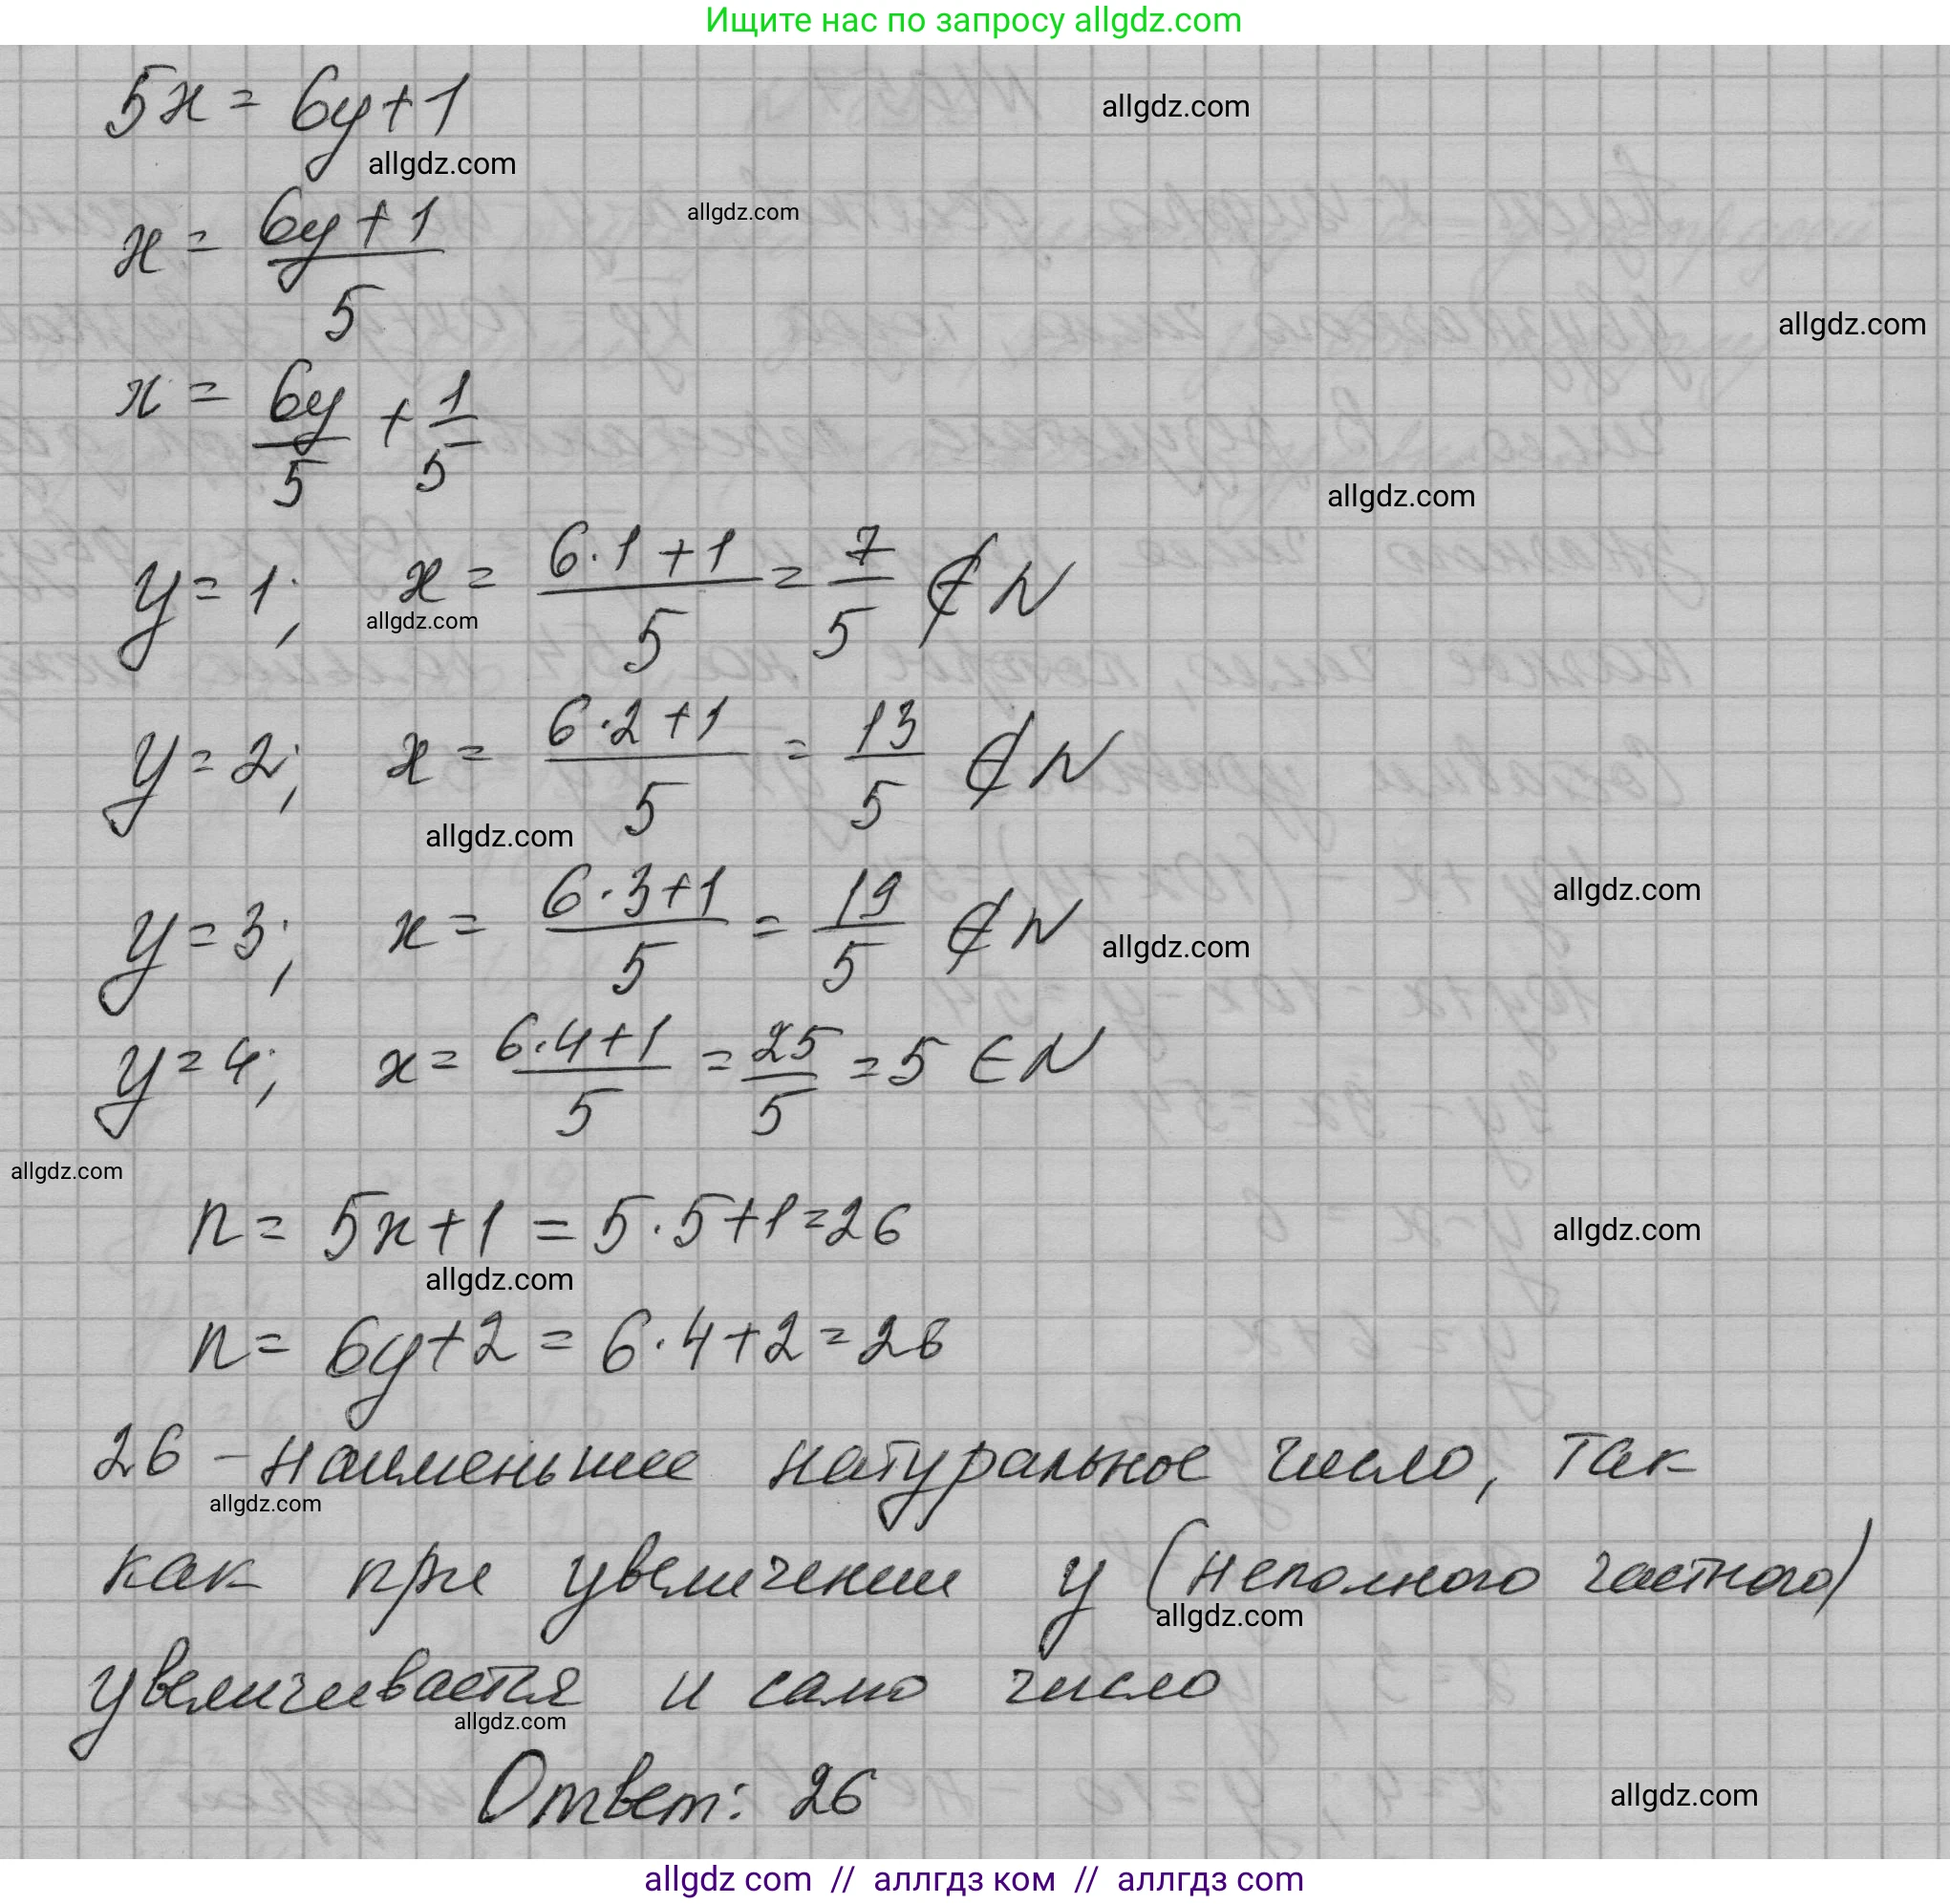 Ищите нас по запросу allgdz.com
5x = 6y+1
allgdz.com
allgdz.com
x = \frac{6y+1}{5}
allgdz.com
allgdz.com
x = \frac{6y}{5} + \frac{1}{5}
allgdz.com
y = 1; x = \frac{6·1+1}{5} = \frac{7}{5} ∉ N
allgdz.com
y = 2; x = \frac{6·2+1}{5} = \frac{13}{5} ∉ N
allgdz.com
allgdz.com
y = 3; x = \frac{6·3+1}{5} = \frac{19}{5} ∉ N
allgdz.com
y = 4; x = \frac{6·4+1}{5} = \frac{25}{5} = 5 ∈ N
allgdz.com
n = 5x+1 = 5·5+1=26
allgdz.com
allgdz.com
n = 6y+2 = 6·4+2=26
26 – наименьшее натуральное число, так
allgdz.com
как при увеличении y (неполного частного)
allgdz.com
увеличивается и само число
allgdz.com
Ответ: 26
allgdz.com
allgdz com // аллгдз ком // аллгдз com